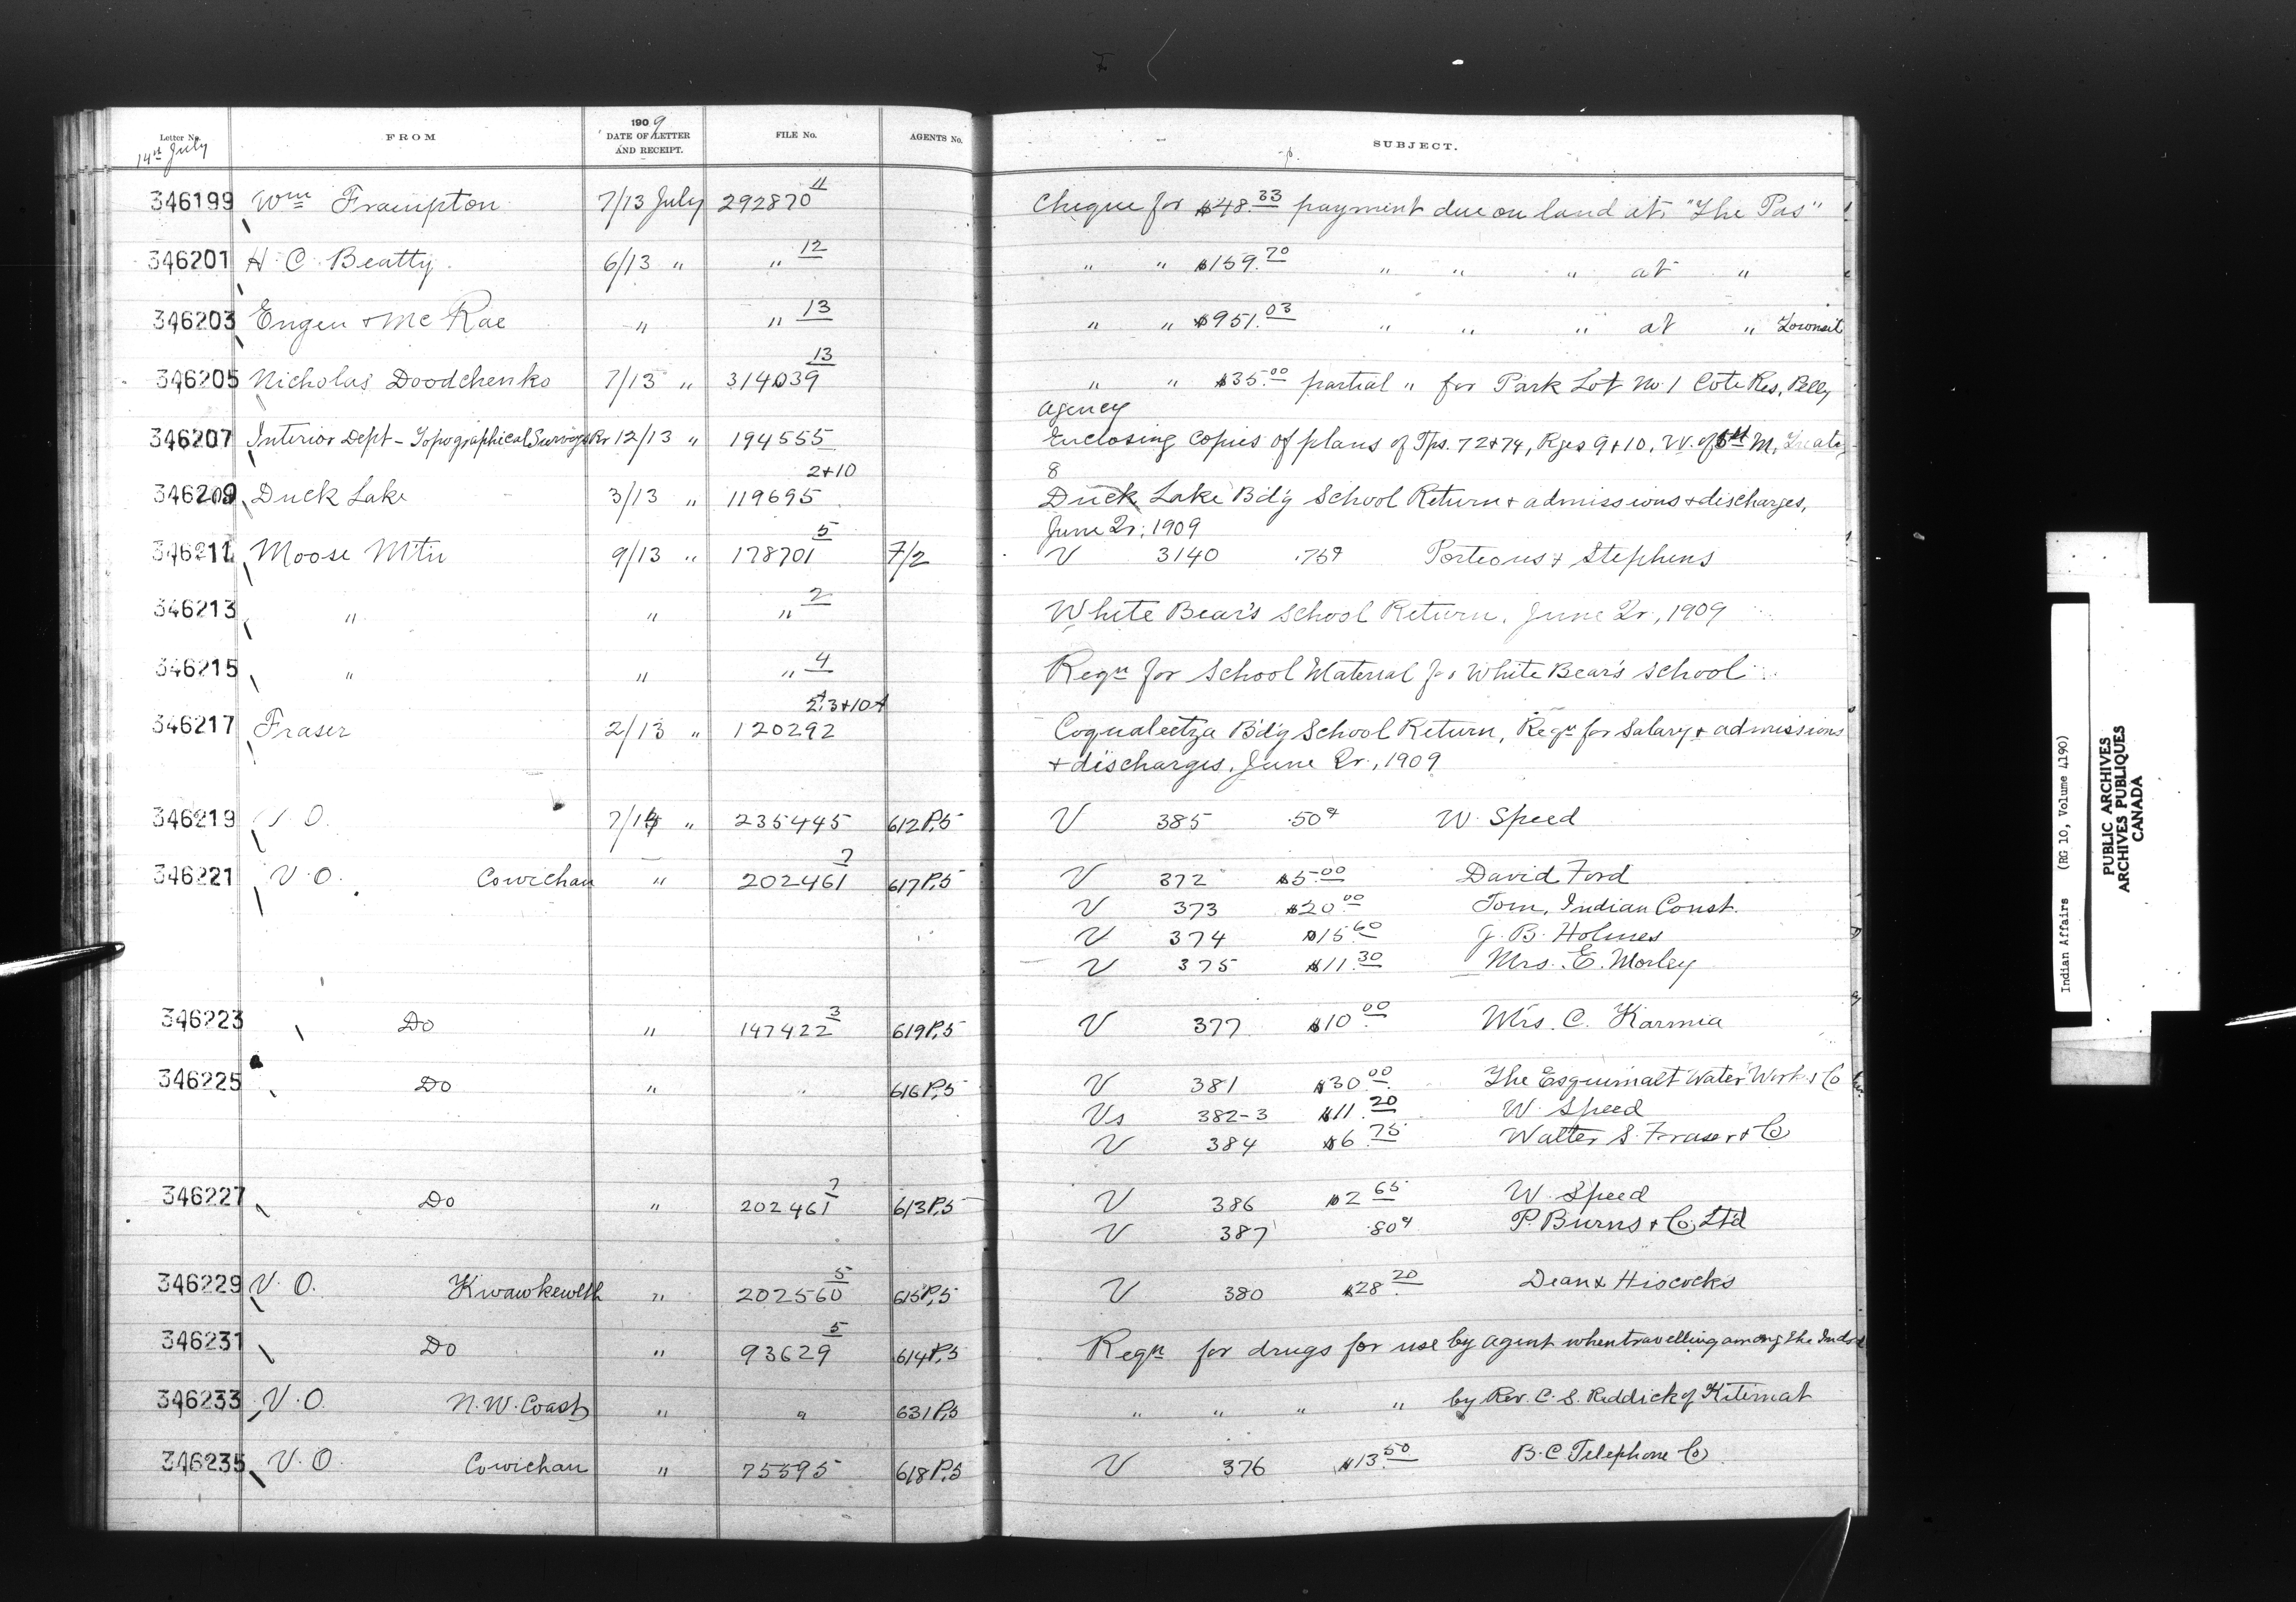 Letter No. FROM 1909 DATE OF LETTER AND RECEIPT. FILE No. AGENTS No. SUBJECT.
14th July
346199 Wm Frampton 7/13 July 292870 11 Cheque for $48.33 payment due on land at "The Pas"
346201 H. C. Beatty 6/13 " " 12 " " $159.70 " " " at "
346203 Engen & McRae " " 13 " " $951.03 " " " at " Townsit
346205 Nicholas Doodchenko 7/13 " 314039 13 " " $35.00 partial " for Park Lot No. 1 Cote Res, Pelly
Agency
346207 Interior Dept - Topographical Surveys Br 12/13 " 194555 Enclosing copies of plans of Tps. 72 & 74, Rges 9 & 10, W. of 5th M. Treaty
8
346209 Duck Lake 3/13 " 119695 2+10 Duck Lake Bd'g School Return & admissions & discharges,
June Qr, 1909
346211 Moose Mtn 9/13 " 178701 5 7/2 V 3140 .75¢ Porteous & Stephens
346213 " " " 2 White Bear's School Return, June Qr, 1909
346215 " " " 4 Reqn for School Material for White Bear's School
346217 Fraser 2/13 " 120292 Coqualeetza Bd'g School Return, Reqn for Salary & admissions
& discharges, June Qr, 1909
346219 V. O. 7/14 " 235445 612P,5 V 385 .50¢ W. Speed
346221 V. O. Cowichan " 202461 7 617P,5 V 372 $5.00 David Ford
V 373 $20.00 Tom, Indian Const.
V 374 $15.60 J. B. Holmes
V 375 $11.30 Mrs. E. Morley
346223 Do " 147422 3 619P,5 V 377 $10.00 Mrs. C. Karmia
346225 Do " " 616P,5 V 381 $30.00 The Esquimalt Water Works Co
Vs 382-3 $11.20 W. Speed
V 384 $6.75 Walter S. Fraser & Co
346227 Do " 202461 7 613P,5 V 386 $2.65 W. Speed
V 387 .80¢ P. Burns & Co, Ltd
346229 V. O. Kwawkewlth " 202560 5 615P,5 V 380 $28.20 Dean & Hiscocks
346231 Do " 93629 5 614P,5 Reqn for drugs for use by Agent when travelling among the Inds
346233 V. O. N. W. Coast " " 631P,5 " " " " by Rev. C. S. Reddick of Kitimat
346235 V. O. Cowichan " 75595 618P,5 V 376 $13.50 B. C Telephone Co
Indian Affairs (RG 10, Volume 4190)
PUBLIC ARCHIVES
ARCHIVES PUBLIQUES
CANADA